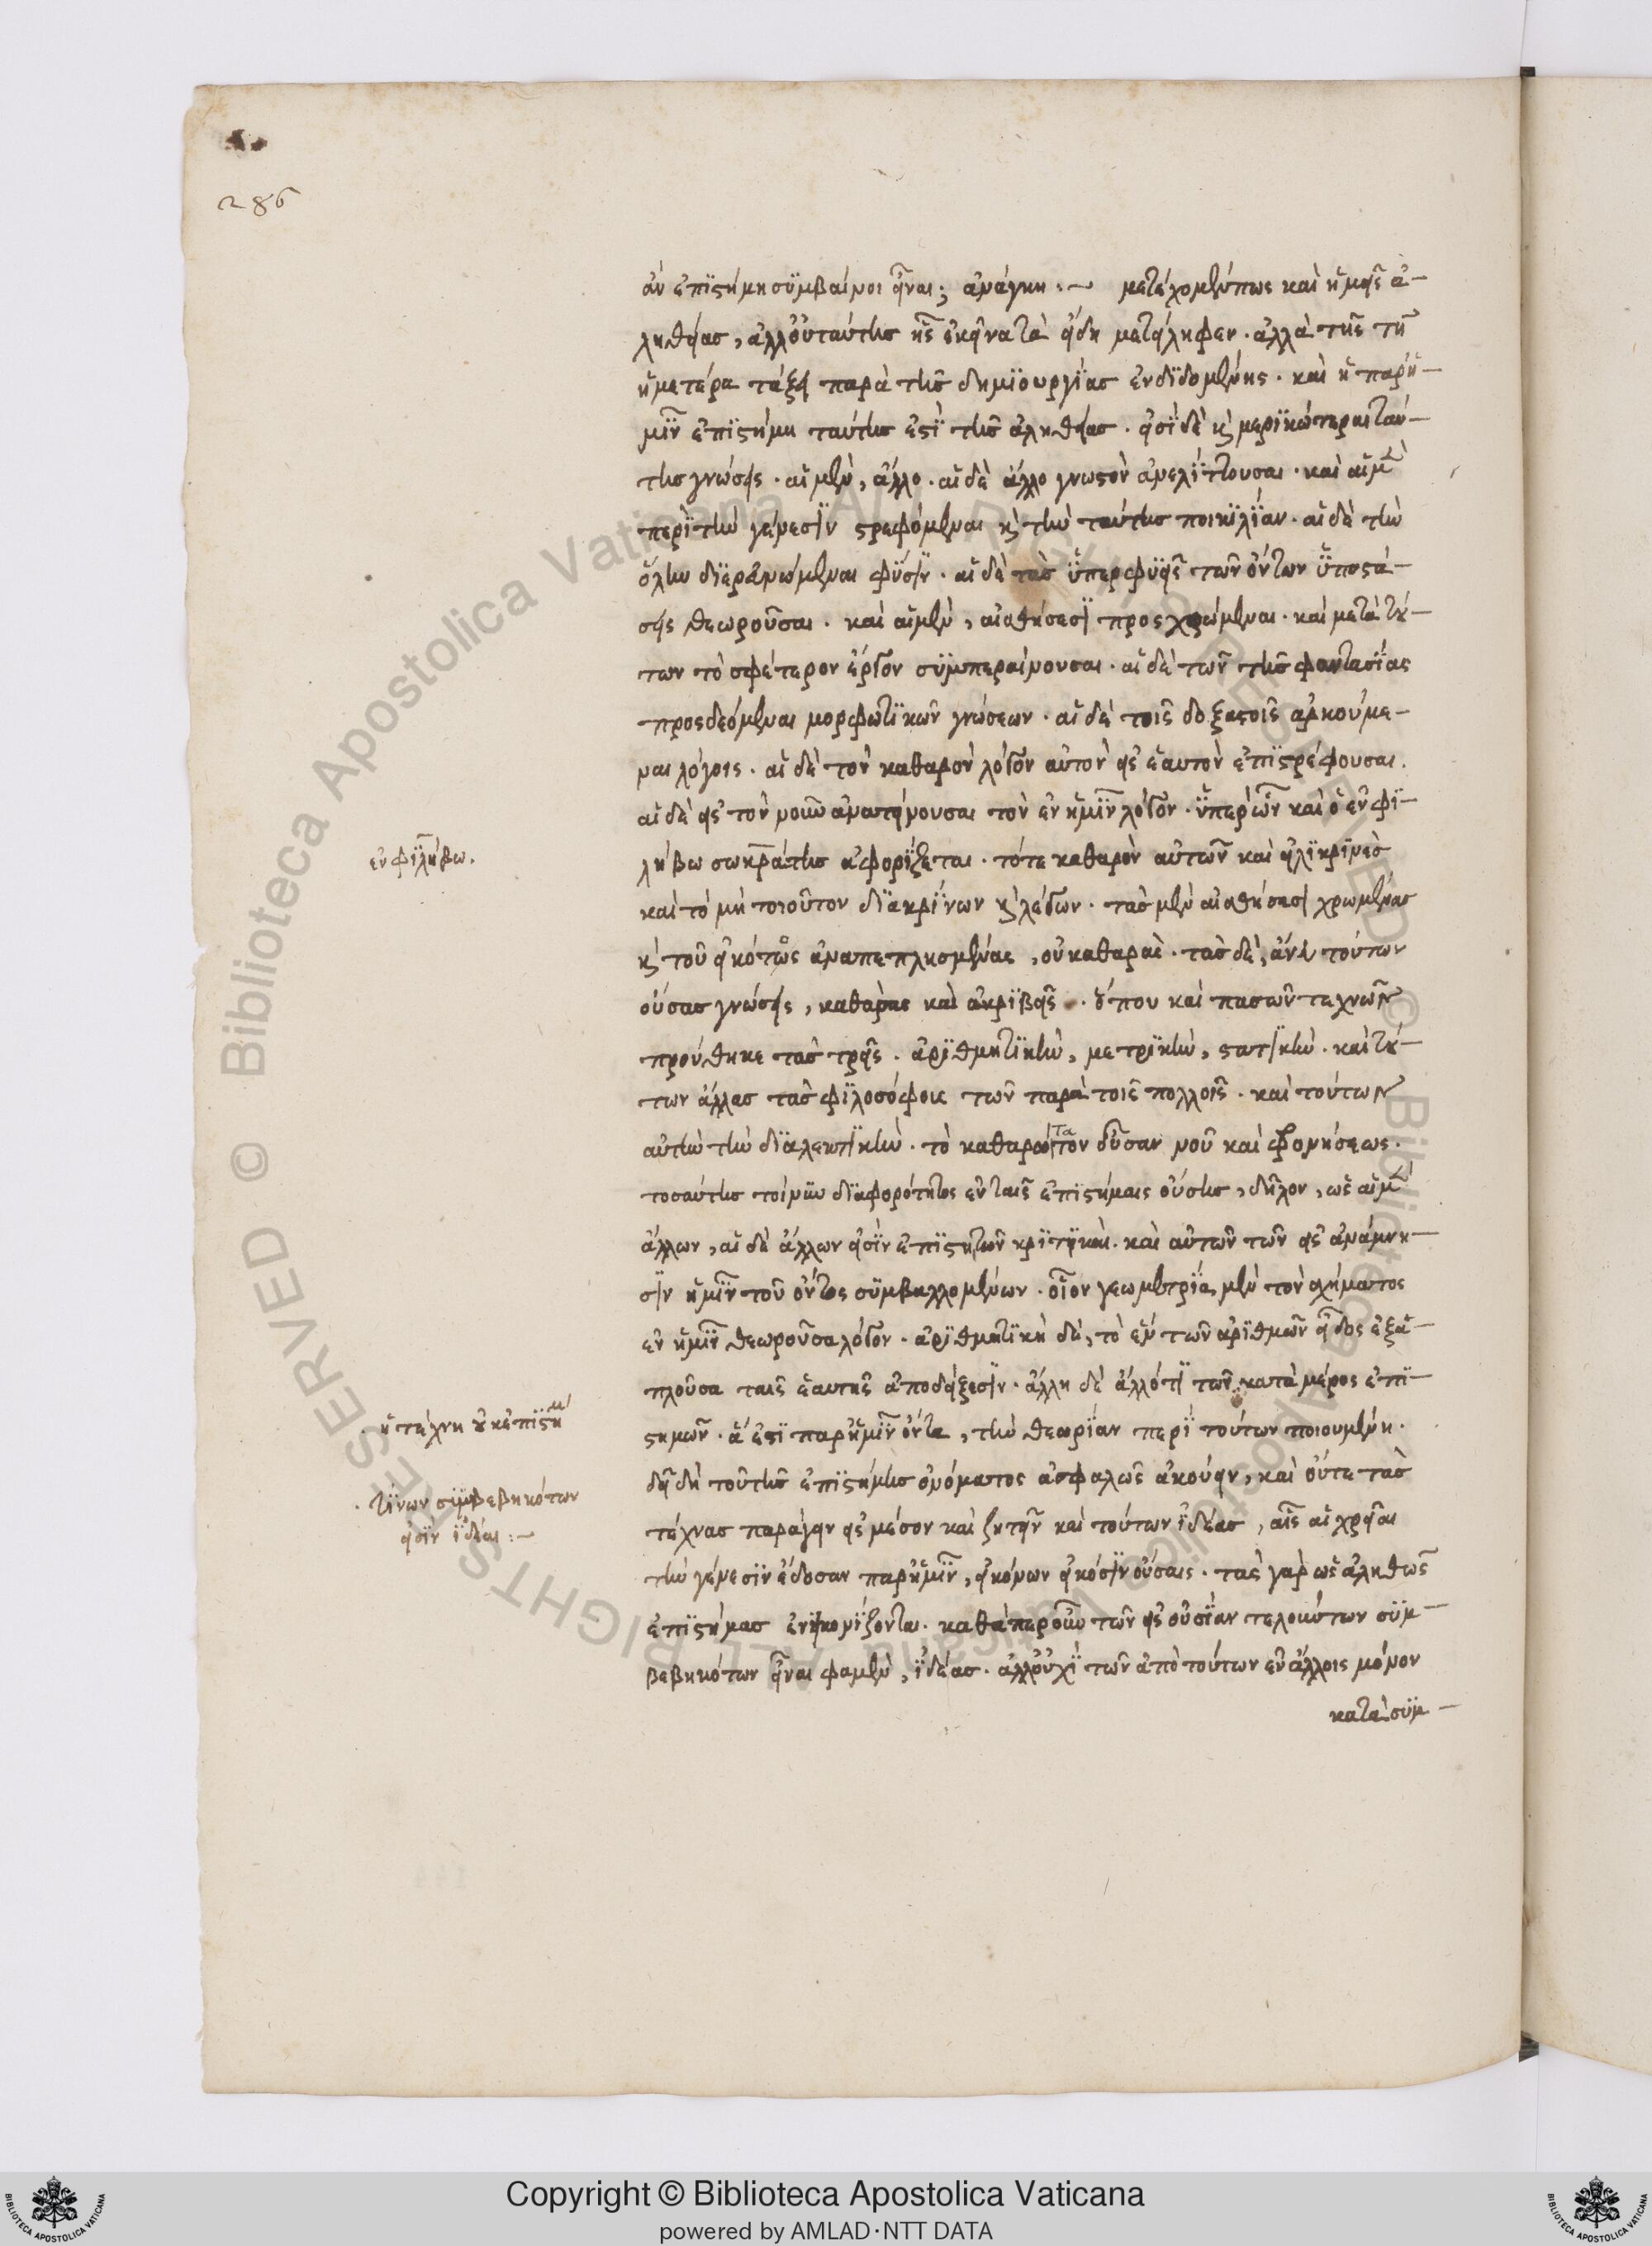 286
ἂν ἐπιστήμη συμβαίνοι εἶναι; ἀνάγκη :~ μετέχομέν πως καὶ ἡμεῖς ἀ-
ληθείας, ἀλλ' οὐ ταύτης ἧς ἐκεῖνα τὰ εἴδη μετείληφεν. ἀλλὰ τῆς τῇ
ἡμετέρα τάξει παρὰ τῆς δημιουργίας ἐνδιδομένης. καὶ ἡ παρ' ἡ-
μῖν ἐπιστήμη ταύτης ἐστὶ τῆς ἀληθείας. εἰσὶ δὲ καὶ μερικώτεραι ταύ-
της γνώσεις. αἱ μὲν, ἄλλο. αἱ δὲ ἄλλο γνωστὸν ἀνελίττουσαι. καὶ αἱ μὲν
περὶ τὴν γένεσιν στρεφόμεναι καὶ τὴν ταύτης ποικιλίαν. αἱ δὲ τὴν
ὅλην διερευνώμεναι φύσιν. αἱ δὲ τὰς ὑπερφυεῖς τῶν ὄντων ὑποστά-
σεις θεωροῦσαι. καὶ αἱ μὲν, αἰσθήσεσι προσχρώμεναι. καὶ μετὰ τού-
των τὸ σφέτερον ἔργον συμπεραίνουσαι. αἱ δὲ τῶν τῆς φαντασίας
προσδεόμεναι μορφωτικῶν γνώσεων. αἱ δὲ τοῖς δοξαστοῖς ἀρκούμε-
ναι λόγοις. αἱ δὲ τὸν καθαρὸν λόγον αὐτὸν εἰς ἑαυτὸν ἐπιστρέφουσαι.
αἱ δὲ εἰς τὸν νοῦν ἀνατείνουσαι τὸν ἐν ἡμῖν λόγον. ὑπὲρ ὧν καὶ ὁ ἐν φι-
λήβω σωκράτης ἀφορίζεται. τό τε καθαρὸν αὐτῶν καὶ εἰλικρινὲς
καὶ τὸ μὴ τοιοῦτον διακρίνων καὶ λέγων. τὰς μὲν αἰσθήσεσι χρωμένας
καὶ τοῦ εἰκότως ἀναπεπλησμένας, οὐ καθαράς. τὰς δὲ, ἄνευ τούτων
οὔσας γνώσεις, καθαρὰς καὶ ἀκριβεῖς. ὅπου καὶ πασῶν τεχνῶν
προύθηκε τὰς τρεῖς. ἀριθμητικὴν, μετρικὴν, στατικὴν. καὶ τού-
των ἄλλας τὰς φιλοσόφοις τῶν παρὰ τοῖς πολλοῖς. καὶ τούτων
αὐτὴν τὴν διαλεκτικὴν. τὸ καθαρώτατον οὖσαν νοῦ καὶ φρονήσεως.
τοσαύτης τοίνυν διαφορότητος ἐν ταῖς ἐπιστήμαις οὔσης, δῆλον, ὡς αἱ μὲν
ἄλλων, αἱ δὲ ἄλλων εἰσὶν ἐπιστητῶν κριτικαὶ. καὶ αὐτῶν τῶν εἰς ἀνάμνη-
σιν ἡμῖν τοῦ ὄντος συμβαλλομένων. οἷον γεωμετρία μὲν τὸν σχήματος
ἐν ἡμῖν θεωροῦσα λόγον. ἀριθμητικὴ δὲ, τὸ ἓν τῶν ἀριθμῶν εἶδος ἐξα-
πλοῦσα ταῖς ἑαυτῆς ἀποδείξεσιν. ἄλλη δὲ ἄλλό τι τῶν κατὰ μέρος ἐπι-
στημῶν. ἅ ἐστι παρ' ἡμῖν ὄντα, τὴν θεωρίαν περὶ τούτων ποιουμένη.
δεῖ δὴ τοῦ τῆς ἐπιστήμης ὀνόματος ἀσφαλῶς ἀκούειν, καὶ οὔτε τὰς
τέχνας παράγειν εἰς μέσον καὶ ζητεῖν καὶ τούτων ἰδέας, αἷς αἱ χρεῖαι
τὴν γένεσιν ἔδοσαν παρ' ἡμῖν, εἰκόνων εἰκόσιν οὔσαις. τὰς γὰρ ὡς ἀληθῶς
ἐπιστήμας ἐνεικονίζονται. καθάπερ οὖν τῶν εἰς οὐσίαν τελούντων συμ-
βεβηκότων εἶναι φαμὲν, ἰδέας. ἀλλ' οὐχὶ τῶν ἀπὸ τούτων ἐν ἄλλοις μόνον
κατὰ συμ-
ἐν φιλήβω.
ἡ τέχνη οὐκ ἐπιστήμη
τίνων συμβεβηκότων
εἰσὶν ἰδέαι :~
© Biblioteca Apostolica Vaticana ALL RIGHTS RESERVED
Copyright © Biblioteca Apostolica Vaticana
powered by AMLAD·NTT DATA
BIBLIOTECA APOSTOLICA VATICANA
BIBLIOTECA APOSTOLICA VATICANA